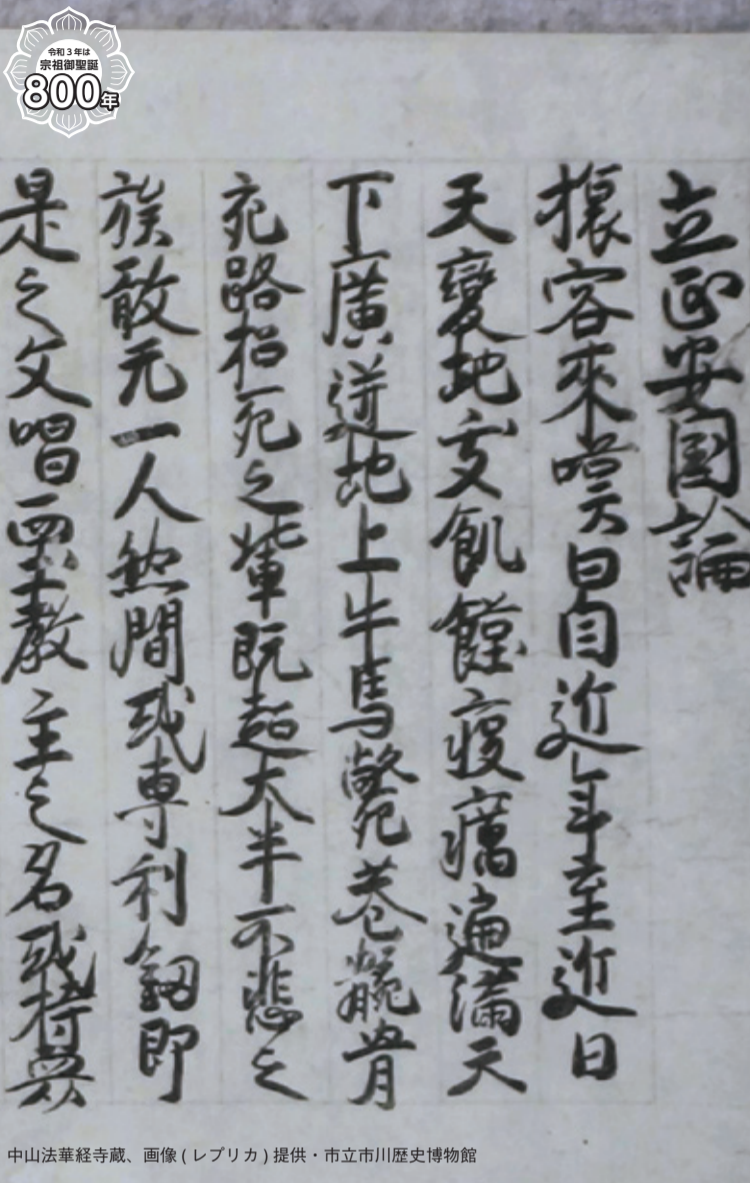 令和3年は
宗祖御聖誕
800年
立正安国論
旅客來嘆曰自近年至近日
天變地夭飢饉疫癘遍滿天
下廣迸地上牛馬斃巷骸骨
充路招死之輩既超大半不悲之
族敢无一人然間或専利釼即
是之文唱西土教主之名或持衆
中山法華経寺蔵、画像(レプリカ)提供・市立市川歴史博物館